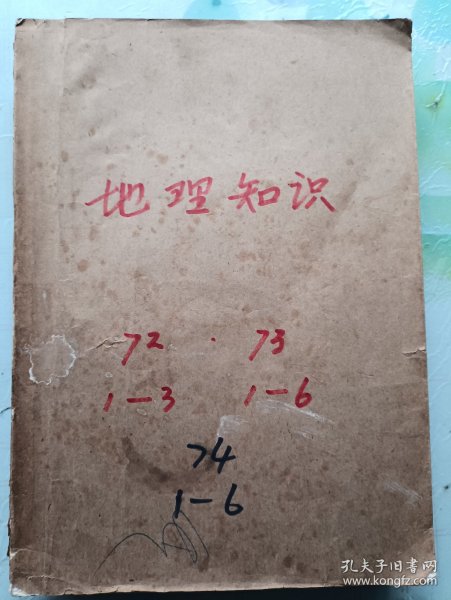 地理知识
72 · 73
1-3 1-6
74
1-6
孔夫子旧书网
www.kongfz.com